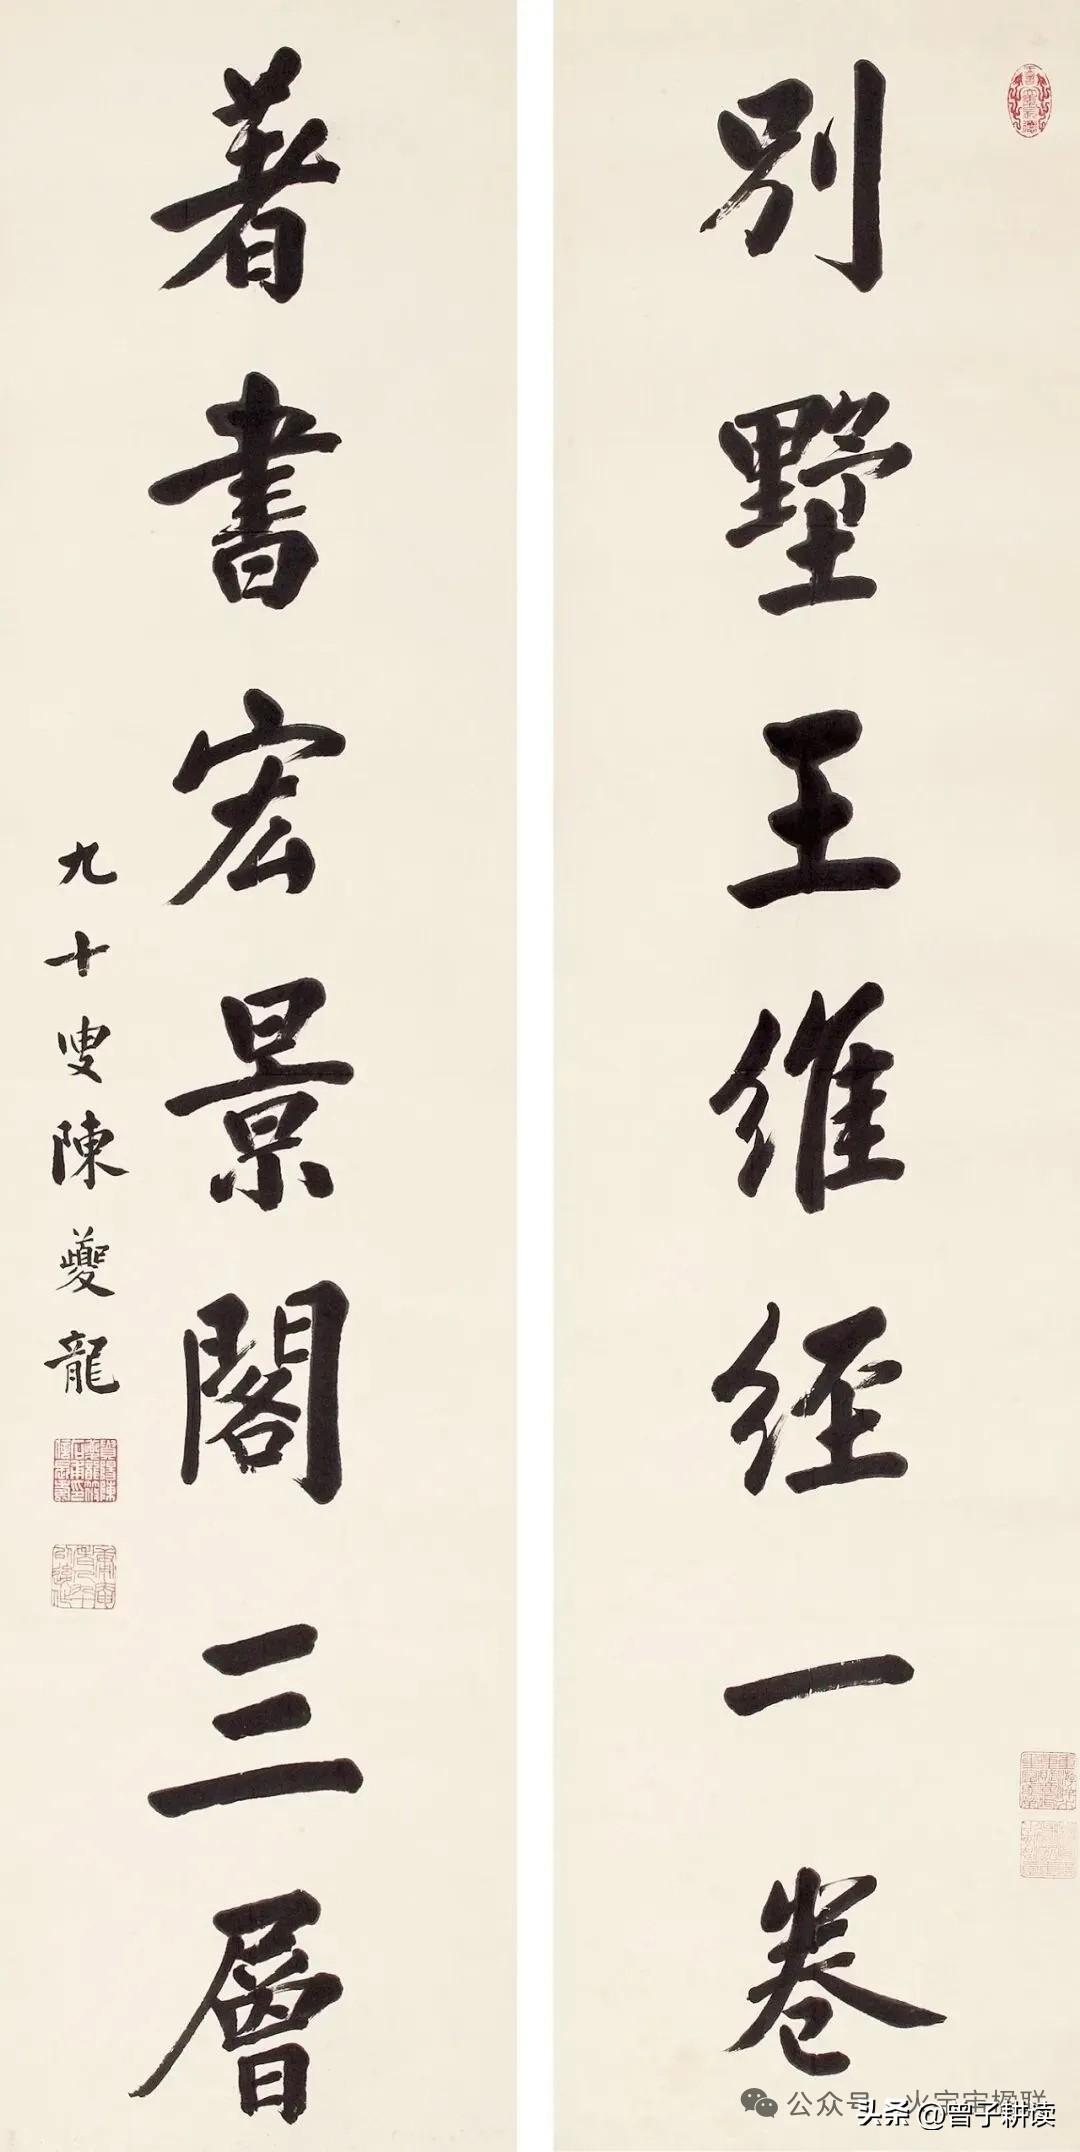 别墅王維經一卷
著書宏景閣三層
九十叟陳夔龍
公众号
头条 @曾子耕读